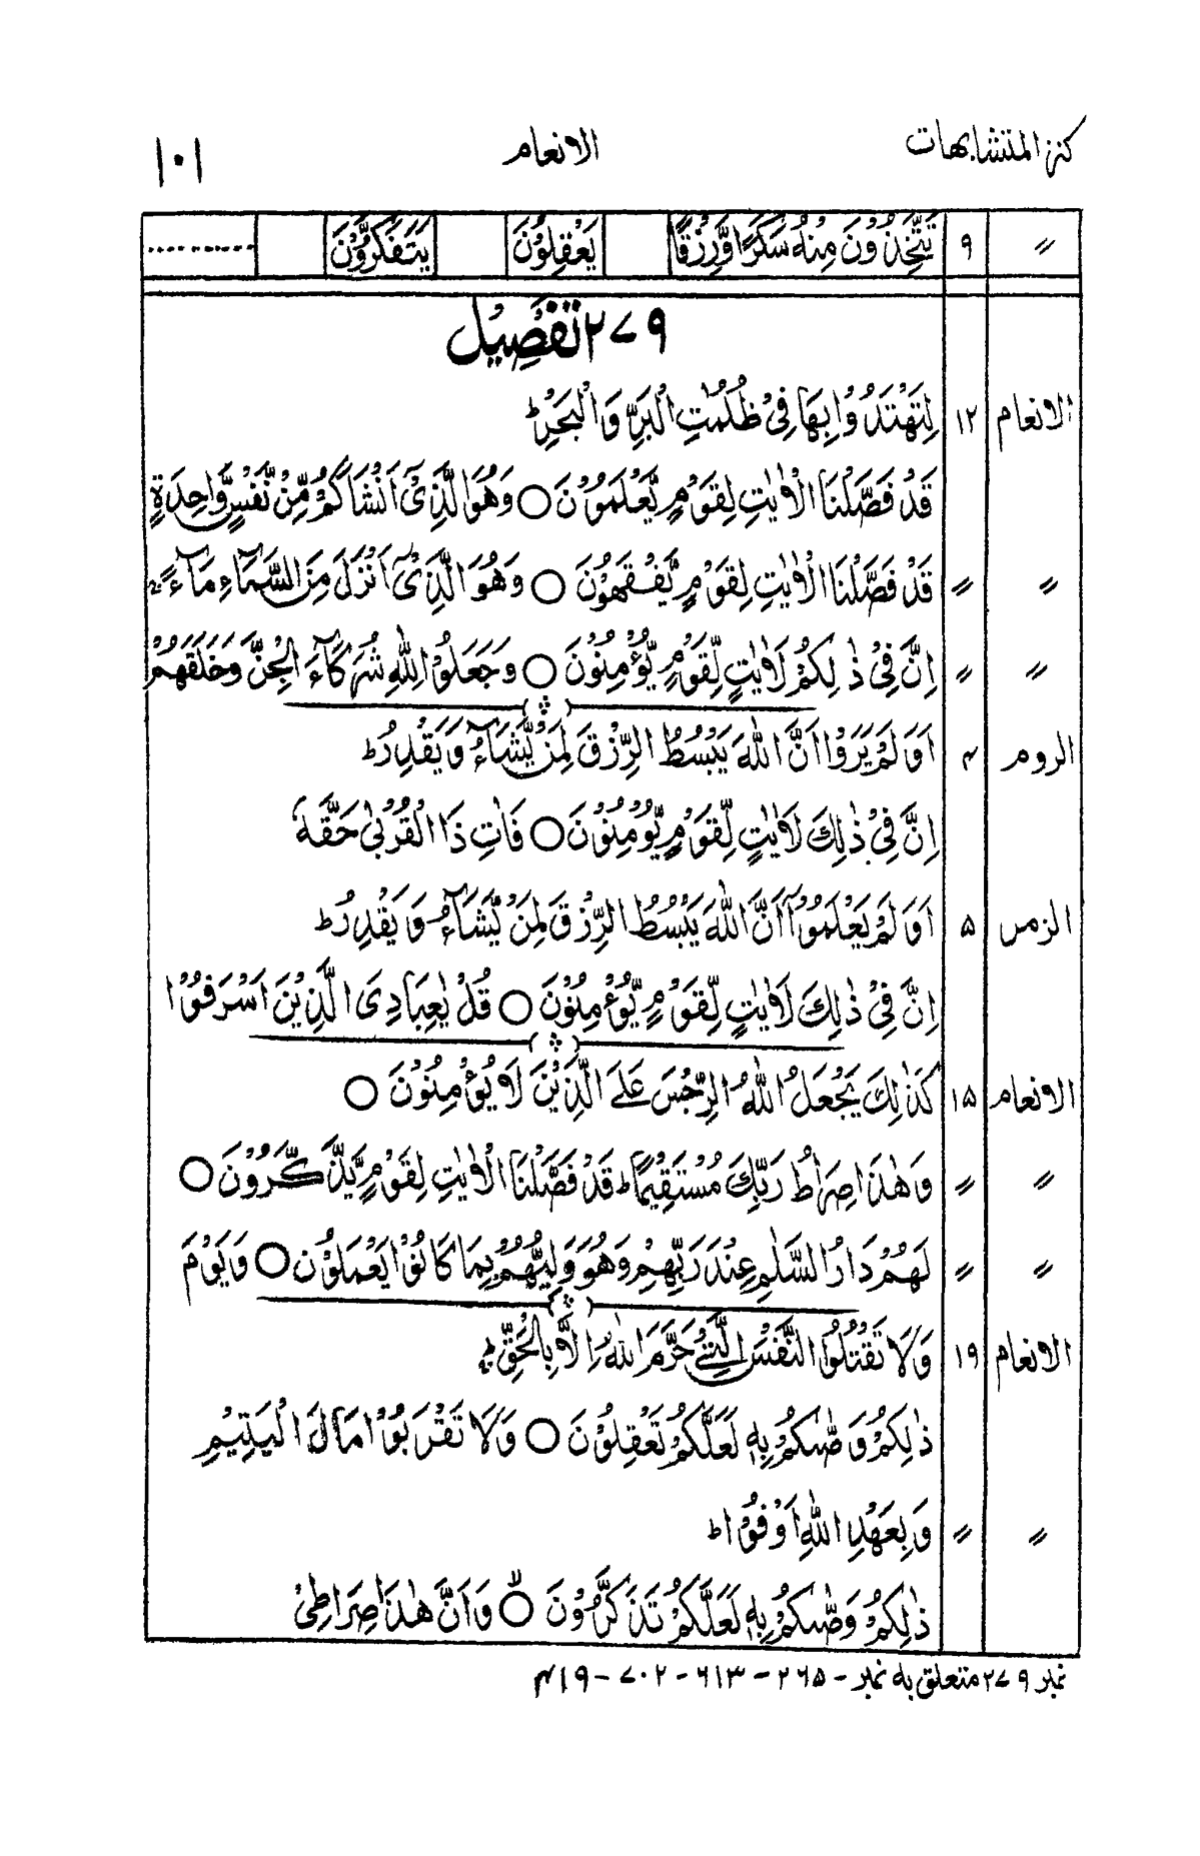 کنز المتشابہات الانعام ۱۰۱
〃 ۹ تَتَّخِذُوْنَ مِنْهُ سَكَرًا وَّرِزْقًا يَعْقِلُوْنَ يَتَفَكَّرُوْنَ ..........
۲۷۹ تَفْصِيْل
الانعام ۱۲ لِتَهْتَدُوْا بِهَا فِيْ ظُلُمٰتِ الْبَرِّ وَالْبَحْرِ ؕ
قَدْ فَصَّلْنَا الْاٰيٰتِ لِقَوْمٍ يَّعْلَمُوْنَ ○ وَهُوَ الَّذِيْٓ اَنْشَاَكُمْ مِّنْ نَّفْسٍ وَّاحِدَةٍ
〃 〃 قَدْ فَصَّلْنَا الْاٰيٰتِ لِقَوْمٍ يَّفْقَهُوْنَ ○ وَهُوَ الَّذِيْٓ اَنْزَلَ مِنَ السَّمَآءِ مَآءً ۚ
〃 〃 اِنَّ فِيْ ذٰلِكُمْ لَاٰيٰتٍ لِّقَوْمٍ يُّؤْمِنُوْنَ ○ وَجَعَلُوْا لِلّٰهِ شُرَكَآءَ الْجِنَّ وَخَلَقَهُمْ
الروم ۴ اَوَلَمْ يَرَوْا اَنَّ اللّٰهَ يَبْسُطُ الرِّزْقَ لِمَنْ يَّشَآءُ وَيَقْدِرُ ؕ
اِنَّ فِيْ ذٰلِكَ لَاٰيٰتٍ لِّقَوْمٍ يُّؤْمِنُوْنَ ○ فَاٰتِ ذَا الْقُرْبٰى حَقَّهٗ
الزمر ۵ اَوَلَمْ يَعْلَمُوْٓا اَنَّ اللّٰهَ يَبْسُطُ الرِّزْقَ لِمَنْ يَّشَآءُ وَيَقْدِرُ ؕ
اِنَّ فِيْ ذٰلِكَ لَاٰيٰتٍ لِّقَوْمٍ يُّؤْمِنُوْنَ ○ قُلْ يٰعِبَادِيَ الَّذِيْنَ اَسْرَفُوْا
الانعام ۱۵ كَذٰلِكَ يَجْعَلُ اللّٰهُ الرِّجْسَ عَلَى الَّذِيْنَ لَا يُؤْمِنُوْنَ ○
〃 〃 وَهٰذَا صِرَاطُ رَبِّكَ مُسْتَقِيْمًا ؕ قَدْ فَصَّلْنَا الْاٰيٰتِ لِقَوْمٍ يَّذَّكَّرُوْنَ ○
〃 〃 لَهُمْ دَارُ السَّلٰمِ عِنْدَ رَبِّهِمْ وَهُوَ وَلِيُّهُمْ بِمَا كَانُوْا يَعْمَلُوْنَ ○ وَيَوْمَ
الانعام ۱۹ وَلَا تَقْتُلُوا النَّفْسَ الَّتِيْ حَرَّمَ اللّٰهُ اِلَّا بِالْحَقِّ ؕ
ذٰلِكُمْ وَصّٰىكُمْ بِهٖ لَعَلَّكُمْ تَعْقِلُوْنَ ○ وَلَا تَقْرَبُوْا مَالَ الْيَتِيْمِ
〃 〃 وَبِعَهْدِ اللّٰهِ اَوْفُوْا ؕ
ذٰلِكُمْ وَصّٰىكُمْ بِهٖ لَعَلَّكُمْ تَذَكَّرُوْنَ ○ۙ وَاَنَّ هٰذَا صِرَاطِيْ
نمبر ۲۷۹ متعلق بہ نمبر - ۲۶۵ - ۶۱۳ - ۷۰۲ - ۴۱۹